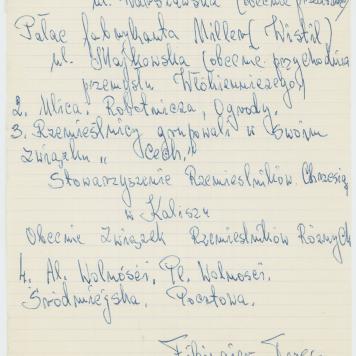 ul. Warszawska (obecnie przedszkole)
Pałac fabrykanta Miller (Wistil)
ul. Majkowska (obecnie przychodnia
przemysłu Włókienniczego)
2. Ulica. Robotnicza, Ogrody.
3. Rzemieślnicy grupowali w swoim
związku „Cech."
Stowarzyszenie Rzemieślników Chrześcij
w Kaliszu
Obecnie Związek Rzemieślników Różnych
4. Al. Wolności, Pl. Wolności.
Śródmiejska, Pocztowa.